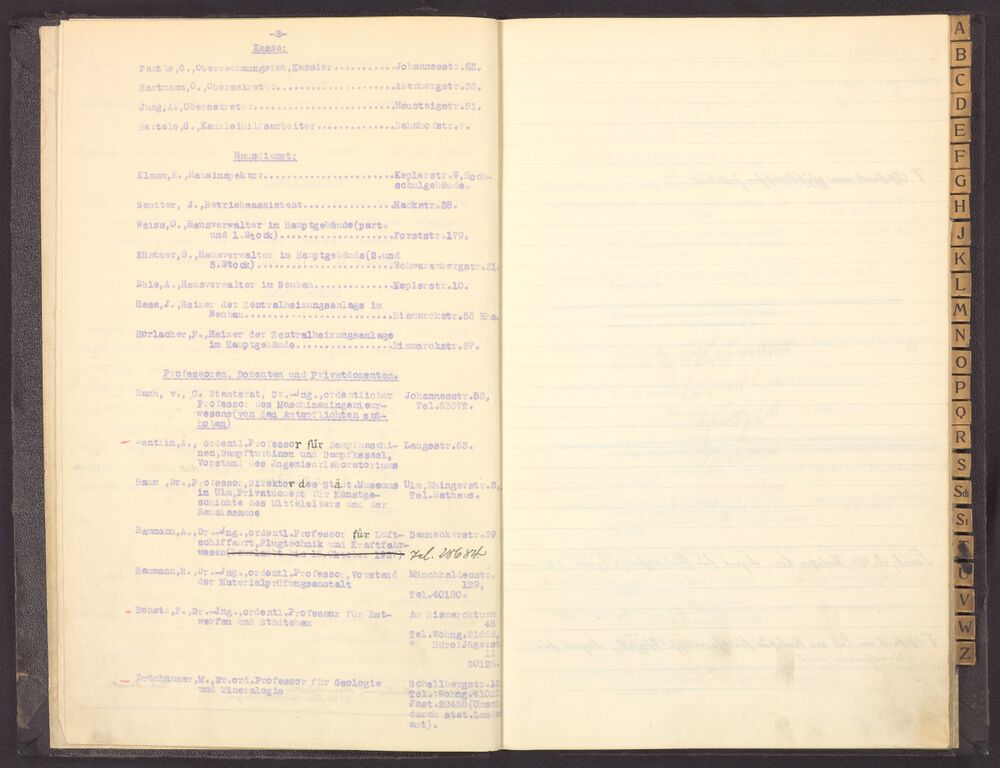 -2-
Kasse:
Pantle,G.,Oberrechnungsrat,Kassier...........Johannesstr.63.
Hartmann,O.,Obersekretär.....................Azenbergstr.36.
Jung,A.,Obersekretär.........................Hausteigstr.51.
Hertele,G.,Kanzleihilfsarbeiter..............Bahnhofstr.7.
Hausdienst:
Klemm,K.,Hausinspektor.......................Keplerstr.9,Hoch-
schulgebäude.
Sautter, J.,Betriebsassistent................Hackstr.38.
Weiss,O.,Hausverwalter im Hauptgebäude(part.
und 1.Stock).................Forststr.179.
Küstner,G.,Hausverwalter im Hauptgebäude(2.und
3.Stock)....................Schwarenbergstr.31.
Eble,A.,Hausverwalter im Neubau..............Keplerstr.10.
Haas,J.,Heizer der Zentralheizungsanlage im
Neubau......................Bismarckstr.53 Hhs.
Horlacher,P.,Heizer der Zentralheizungsanlage
im Hauptgebäude..............Bismarckstr.57.
Professoren, Dozenten und Privatdozenten.
Bach, v., C. Staatsrat, Dr.-Jng.,ordentlicher Johannesstr.53,
Professor des Maschineningenieur- Tel.62672.
wesens(von den Amtspflichten ent-
hoben)
Bantlin,A., ordentl.Professor für Dampfmaschi- Langestr.63.
nen,Dampfturbinen und Dampfkessel,
Vorstand des Jngenieurlaboratoriums
Baum ,Dr.,Professor,Direktor des Städt.Museums Ulm,Ehingerstr.3,
in Ulm,Privatdozent für Kunstge- Tel.Rathaus.
schichte des Mittelalters und der
Renaissance
Baumann,A.,Dr.-Jng.,ordentl.Professor für Luft- Danneckerstr.39
schiffahrt,Flugtechnik und Kraftfahr-
wesen(beurlaubt bis 15.Oktober 1927) Tel. 28684
Baumann,R.,Dr.-Jng.,ordentl.Professor,Vorstand Mönchhaldenstr.
der Materialprüfungsanstalt 129,
Tel.40180.
Bonatz,P.,Dr.-Jng.,ordentl.Professor für Ent- Am Bismarckturm
werfen und Städtebau 45
Tel.Wohng.21665,
" Büro:Jägerst
11
20125.
Bräuhäuser,M.,Dr.ord.Professor für Geologie Schellbergstr.
und Mineralogie Tel.:Wohng.
Jnst.22488(Umsch
durch stat.Land
amt).
A
B
C
D
E
F
G
H
J
K
L
M
N
O
P
Q
R
S
Sch
St
T
U
V
W
Z